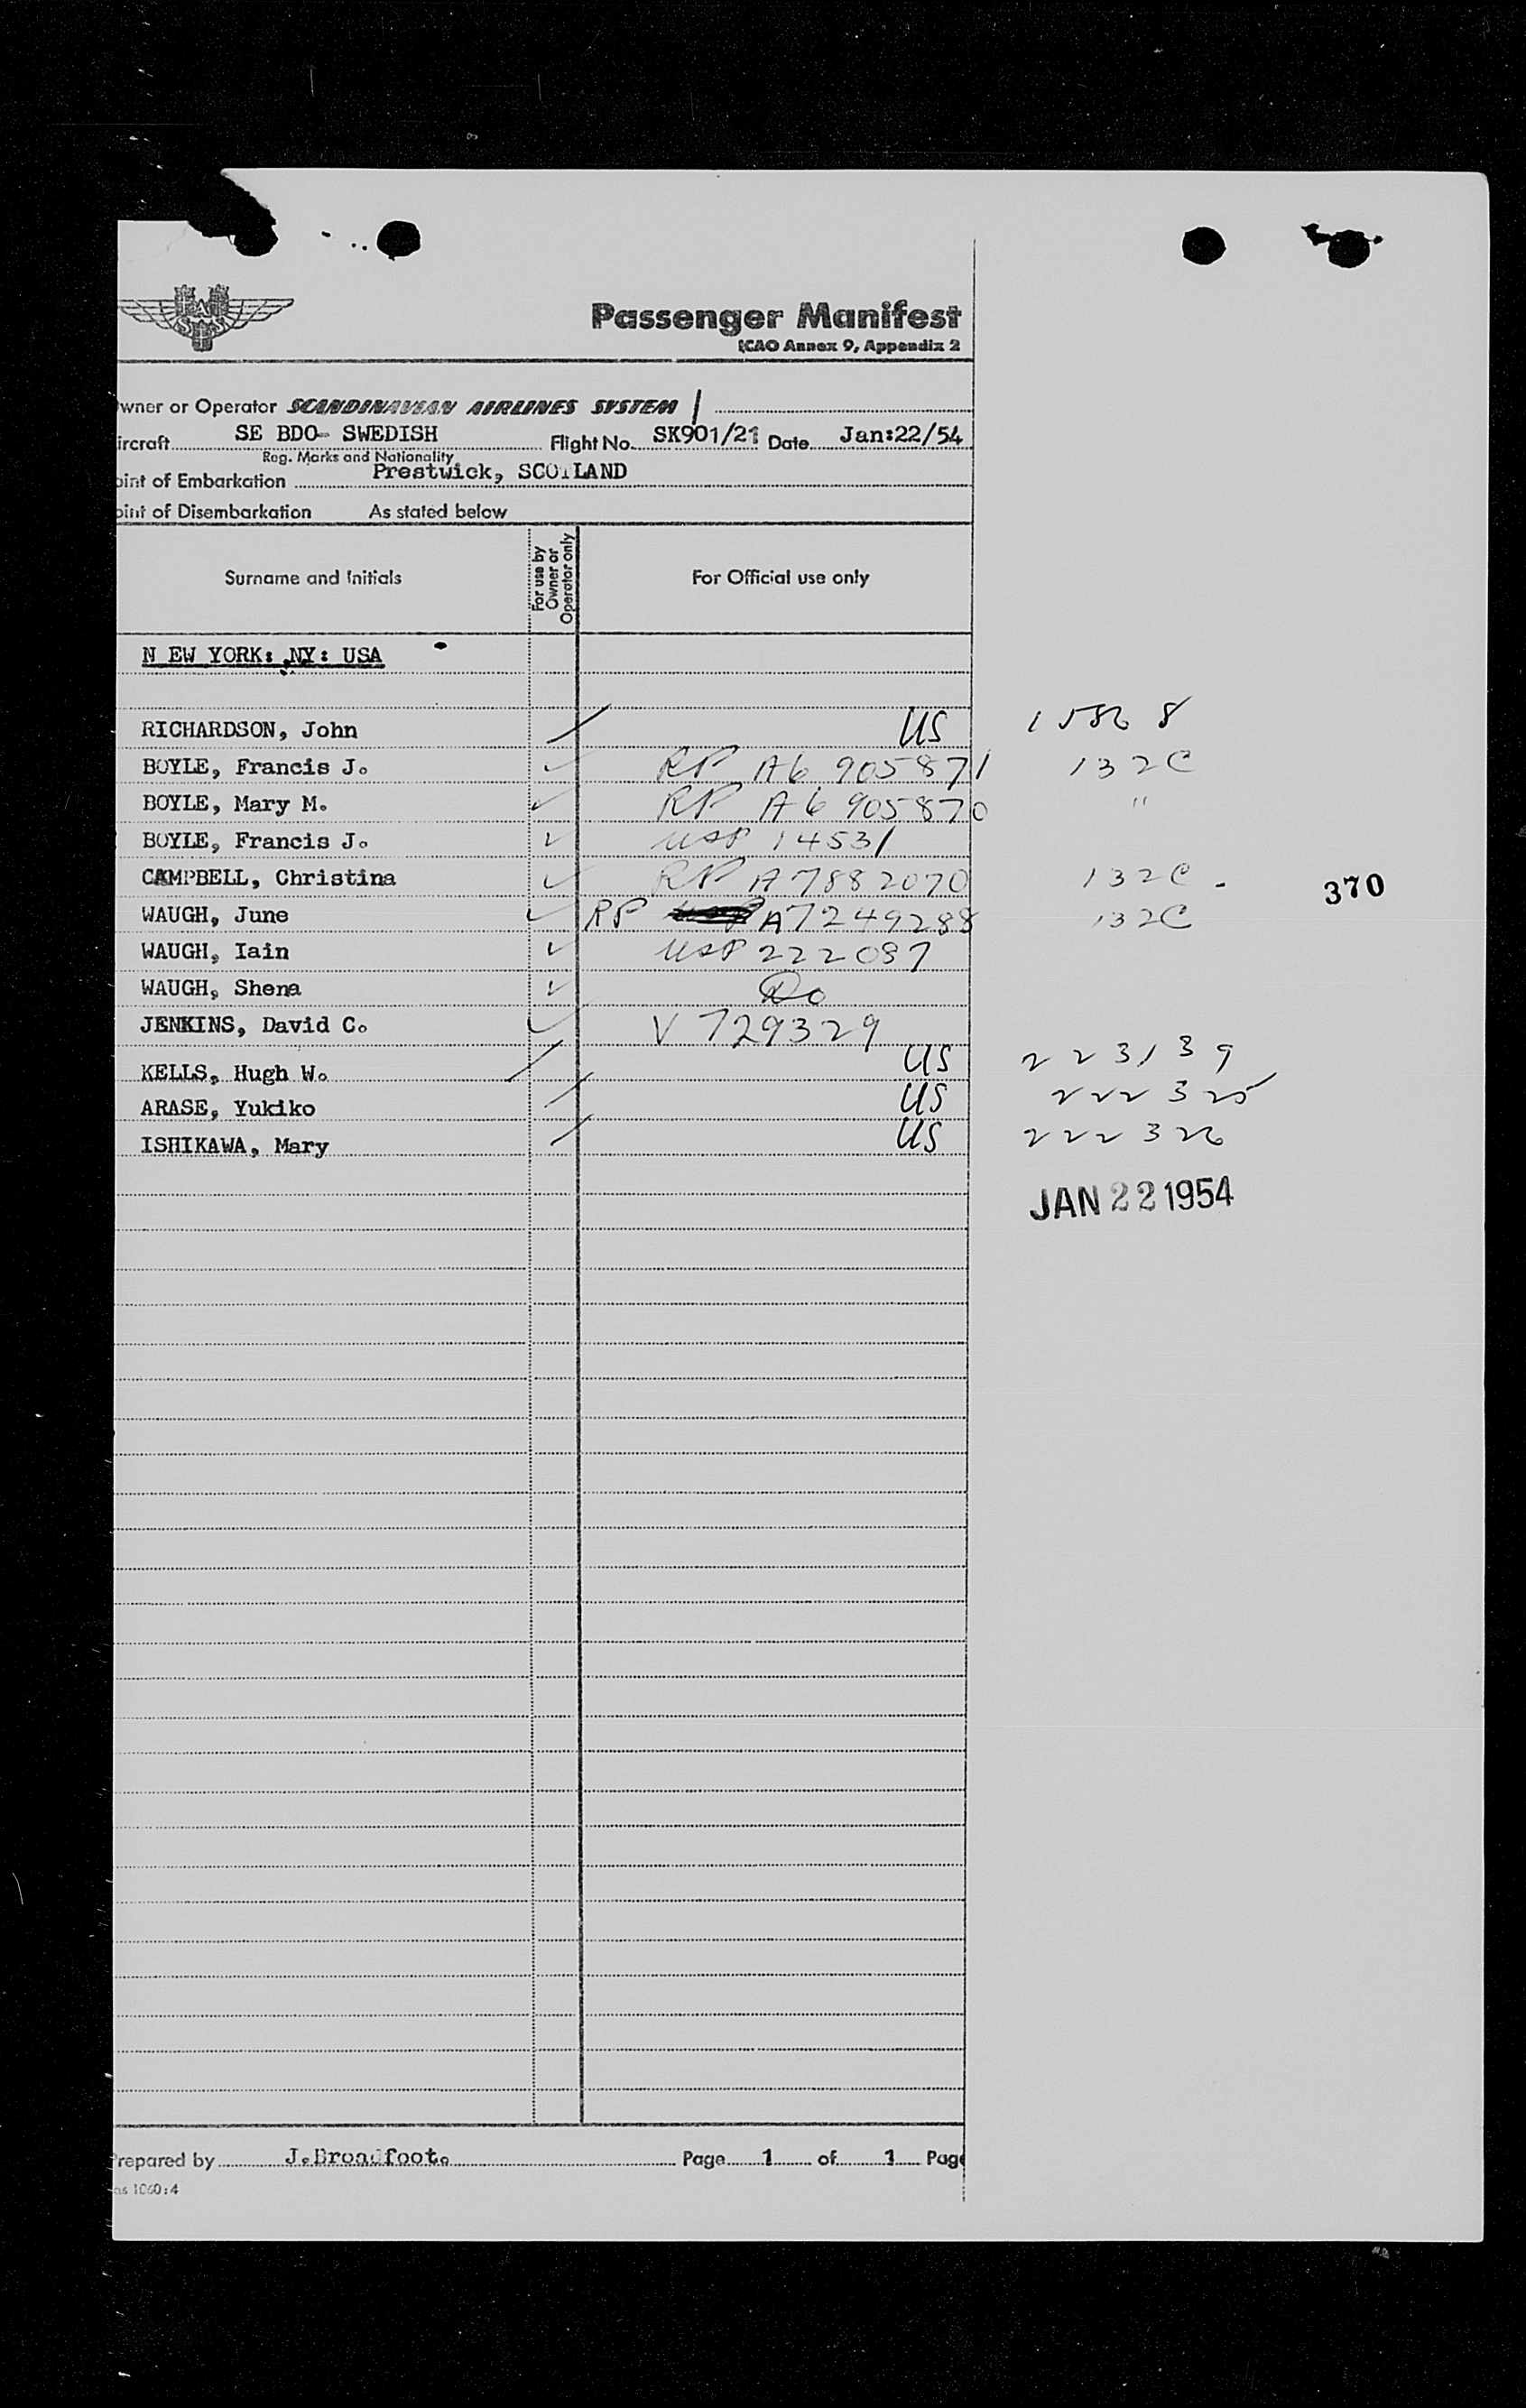 Passenger Manifest
ICAO Annex 9, Appendix 2
wner or Operator SCANDINAVIAN AIRLINES SYSTEM
ircraft SE BDO- SWEDISH Flight No. SK901/21 Date Jan:22/54
Reg. Marks and Nationality
oint of Embarkation Prestwick, SCOTLAND
oint of Disembarkation As stated below
Surname and Initials For use by Owner or Operator only For Official use only
N EW YORK: NY: USA
RICHARDSON, John US 15868
BOYLE, Francis J. RP A6 905871 132C
BOYLE, Mary M. RP A6 905870 "
BOYLE, Francis J. USP 14531
CAMPBELL, Christina RP A7882070 132C - 370
WAUGH, June RP A7249288 132C
WAUGH, Iain USP 222087
WAUGH, Shena Do
JENKINS, David C. V 729329
KELLS, Hugh W. US 223139
ARASE, Yukiko US 222325
ISHIKAWA, Mary US 222326
JAN 22 1954
Prepared by J.Broadfoot. Page 1 of 1 Page
as 1060:4